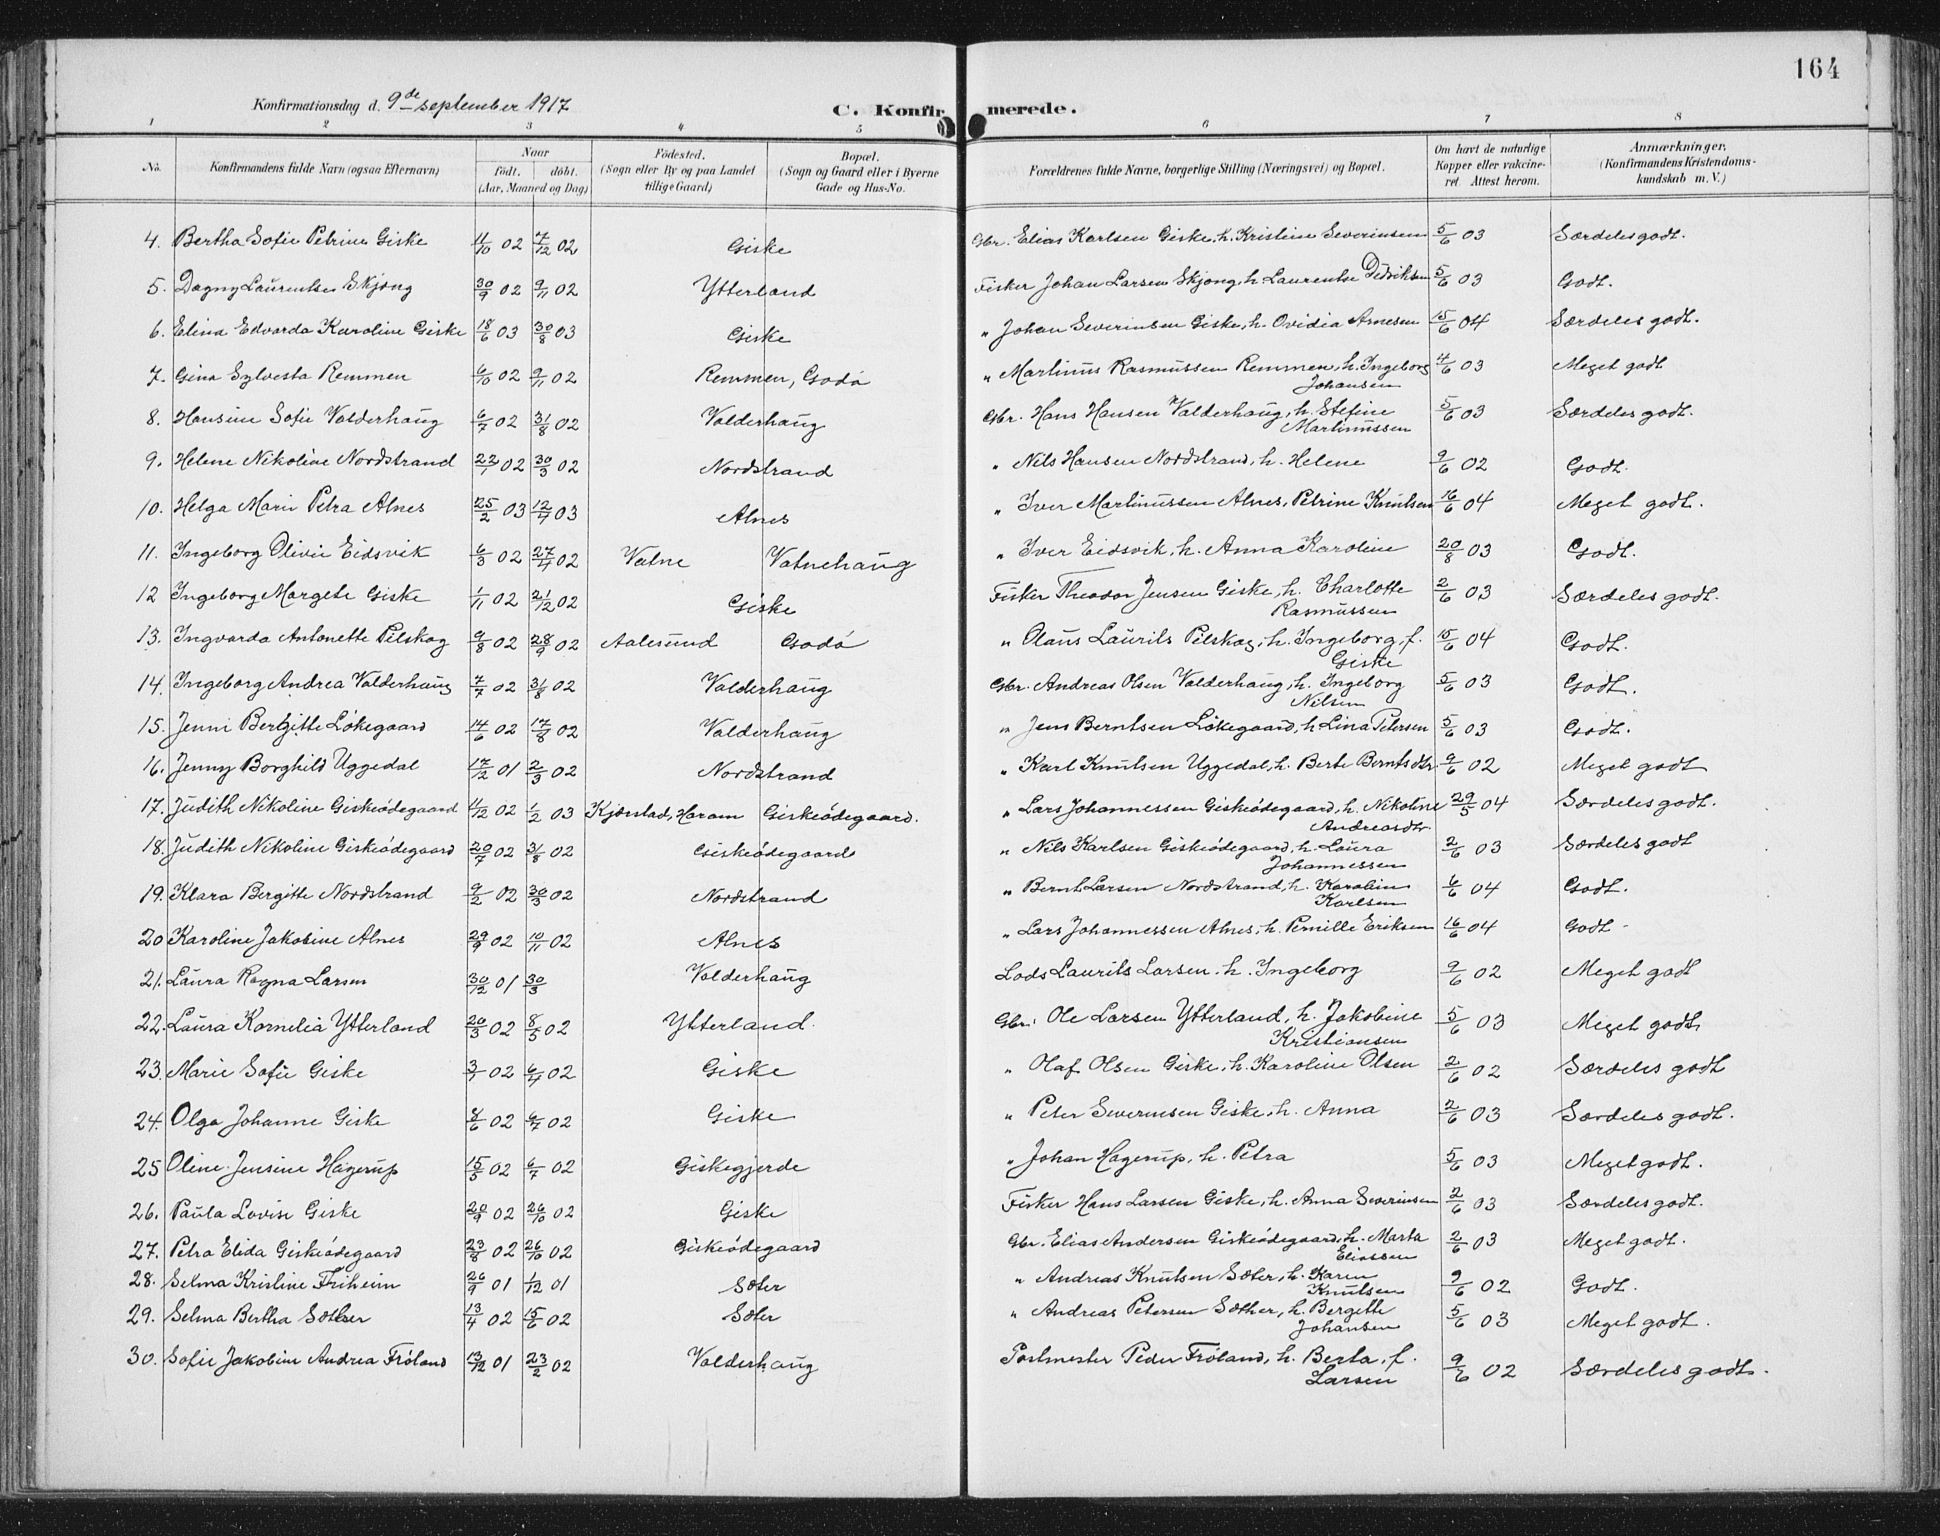 164
Konfirmationsdag d. 9de september 1917
C. Konfirmerede.
1 2 3 4 5 6 7 8
No. Konfirmandens fulde Navn (ogsaa Efternavn) Naar født. døbt. (Aar, Maaned og Dag) Fødested. (Sogn eller By og paa Landet tillige Gaard) Bopæl. (Sogn og Gaard eller i Byerne Gade og Hus-No. Forældrenes fulde Navne, borgerlige Stilling (Næringsvei) og Bopæl. Om havt de naturlige Kopper eller vakcineret Attest herom. Anmærkninger. (Konfirmandens Kristendomskundskab m. V.)
4. Bertha Sofie Petrine Giske 11/10 02 7/12 02 Giske Gbr. Elias Karlsen Giske, h. Kristine Severinsen 5/6 03 Særdeles godt.
5. Dagny Laurentse Skjong 30/9 02 9/11 02 Ytterland Fisker Johan Larsen Skjong, h. Laurentse Didriksen 5/6 03 Godt.
6. Elina Edvarda Karoline Giske 18/6 03 30/8 03 Giske " Johan Severinsen Giske, h. Ovidia Arnesen 15/6 04 Særdeles godt.
7. Gina Sylvesta Remmen 6/10 02 9/11 02 Remmen, Godø " Martinus Rasmussen Remmen, h. Ingeborg Johansen 4/6 03 Meget godt
8. Hansine Sofie Valderhaug 6/7 02 31/8 02 Valderhaug Gbr. Hans Hansen Valderhaug, h. Stefine Martinussen 5/6 03 Særdeles godt.
9. Helene Nikoline Nordstrand 22/1 02 30/3 02 Nordstrand " Nils Hansen Nordstrand, h. Helene 9/6 02 Godt.
10. Helga Marie Petra Alnes 25/2 03 12/4 03 Alnes " Iver Martinussen Alnes, Petrine Knutsen 16/6 04 Meget godt.
11. Ingeborg Olivie Eidsvik 6/3 02 27/4 02 Vatne Vatnehaug " Iver Eidsvik, h. Anna Karoline 20/8 03 Godt.
12 Ingeborg Margete Giske 1/11 02 21/12 02 Giske Fisker Theodor Jensen Giske, h. Charlotte Rasmussen 2/6 03 Særdeles godt.
13. Ingvarda Antonette Pilskog 9/8 02 28/9 02 Aalesund Godø " Olaus Laurits Pilskog, h. Ingeborg, f. Giske 15/6 04 Godt.
14. Ingeborg Andrea Valderhaug 7/7 02 31/8 02 Valderhaug Gbr. Andreas Olsen Valderhaug, h. Ingeborg Nilsen 5/6 03 Godt.
15. Jenni Bergitte Løkegaard 14/6 02 17/8 02 Valderhaug " Jens Berntsen Løkegaard, h Lina Petersen 5/6 03 Godt.
16. Jenny Borghild Uggedal 17/12 01 2/3 02 Nordstrand " Karl Knutsen Uggedal, h. Berte Berntsdtr 9/6 02 Meget godt
17. Judith Nikoline Giskeødegaard 4/12 02 1/2 03 Kjørstad, Haram Giskeødegaard. " Lars Johannessen Giskeødegaard, h. Nikoline Andreasdtr. 29/5 04 Særdeles godt.
18. Judith Nikoline Giskeødegaard 20/7 02 31/8 02 Giskeødegaard " Nils Karlsen Giskeødegaard, h. Laura Johannessen 2/6 03 Særdeles godt
19. Klara Bergitte Nordstrand 9/2 02 30/3 02 Nordstrand " Bernt Larsen Nordstrand, h. Karoline Karlsen 6/6 04 Godt.
20 Karoline Jakobine Alnes 29/9 02 10/11 02 Alnes " Lars Johannessen Alnes, h. Pernille Eriksen 16/6 04 Godt
21. Laura Ragna Larsen 30/12 01 30/3 Valderhaug Lods Laurits Larsen, h. Ingeborg 9/6 02 Meget godt
22. Laura Kornelia Ytterland 20/3 02 8/5 02 Ytterland. Gbr. Ole Larsen Ytterland, h. Jakobine Kristiansen 5/6 03 Meget godt
23. Marie Sofie Giske 3/1 02 6/4 02 Giske " Olaf Olsen Giske, h. Karoline Olsen 2/6 02 Særdeles godt
24. Olga Johanne Giske 8/6 02 6/7 02 Giske " Peter Severinsen Giske, h. Anna 2/6 03 Særdeles godt.
25 Oline Jensine Hagerup 15/5 02 6/7 02 Giskegjerde " Johan Hagerup, h. Petra 5/6 03 Meget godt.
26. Paula Lovise Giske 20/9 02 26/10 02 Giske Fisker Hans Larsen Giske, h. Anna Severinsen 2/6 03 Særdeles godt.
27. Petra Elida Giskeødegaard 23/8 02 26/10 02 Giskeødegaard Gbr. Elias Andersen Giskeødegaard, h. Marta Eliassen 2/6 03 Meget godt.
28. Selma Kristine Friheim 26/9 01 1/12 01 Sæter " Andreas Knutsen Sæter, h. Karen Knutsen 9/6 02 Godt.
29. Selma Bertha Sæther 13/4 02 15/6 02 Sæter " Andreas Petersen Sæther, h. Bergette Johansen 5/6 03 Meget godt.
30. Sofie Jakobine Andrea Frøland 13/12 01 23/2 02 Valderhaug Postmester Peder Frøland, h. Berta, f. Larsen 9/6 02 Særdeles godt.